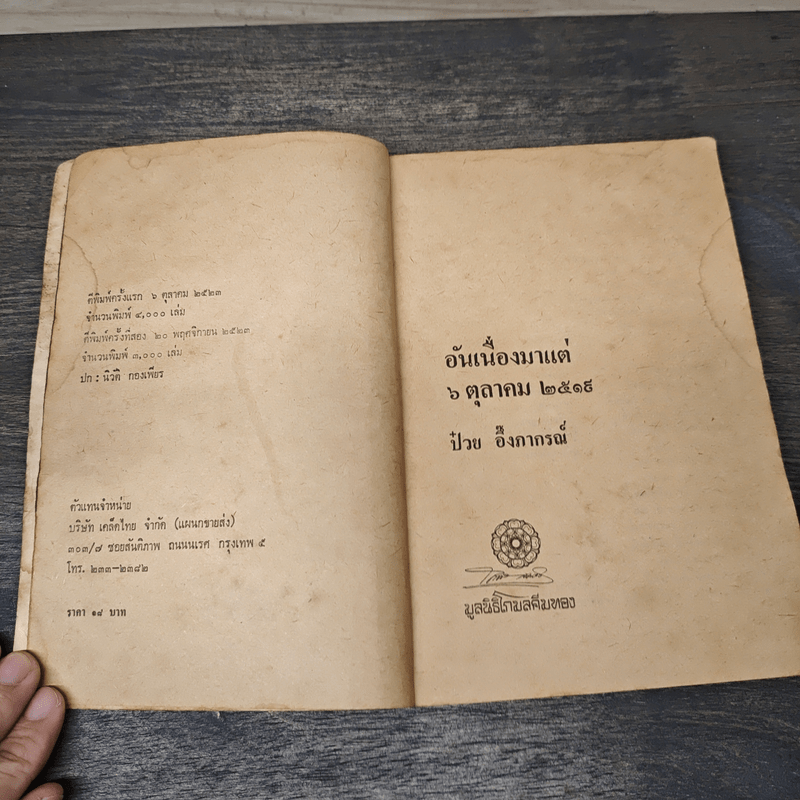 ตีพิมพ์ครั้งแรก ๖ ตุลาคม ๒๕๒๓
จำนวนพิมพ์ ๔,๐๐๐ เล่ม
ตีพิมพ์ครั้งที่สอง ๒๐ พฤศจิกายน ๒๕๒๓
จำนวนพิมพ์ ๓,๐๐๐ เล่ม
ปก : นิวัติ กองเพียร
ตัวแทนจำหน่าย
บริษัท เคล็ดไทย จำกัด (แผนกขายส่ง)
๓๐๓/๗ ซอยสันติภาพ ถนนนเรศ กรุงเทพ ๕
โทร. ๒๓๓–๒๓๘๒
ราคา ๑๘ บาท
อันเนื่องมาแต่
๖ ตุลาคม ๒๕๑๙
ป๋วย อึ๊งภากรณ์
มูลนิธิโกมลคีมทอง